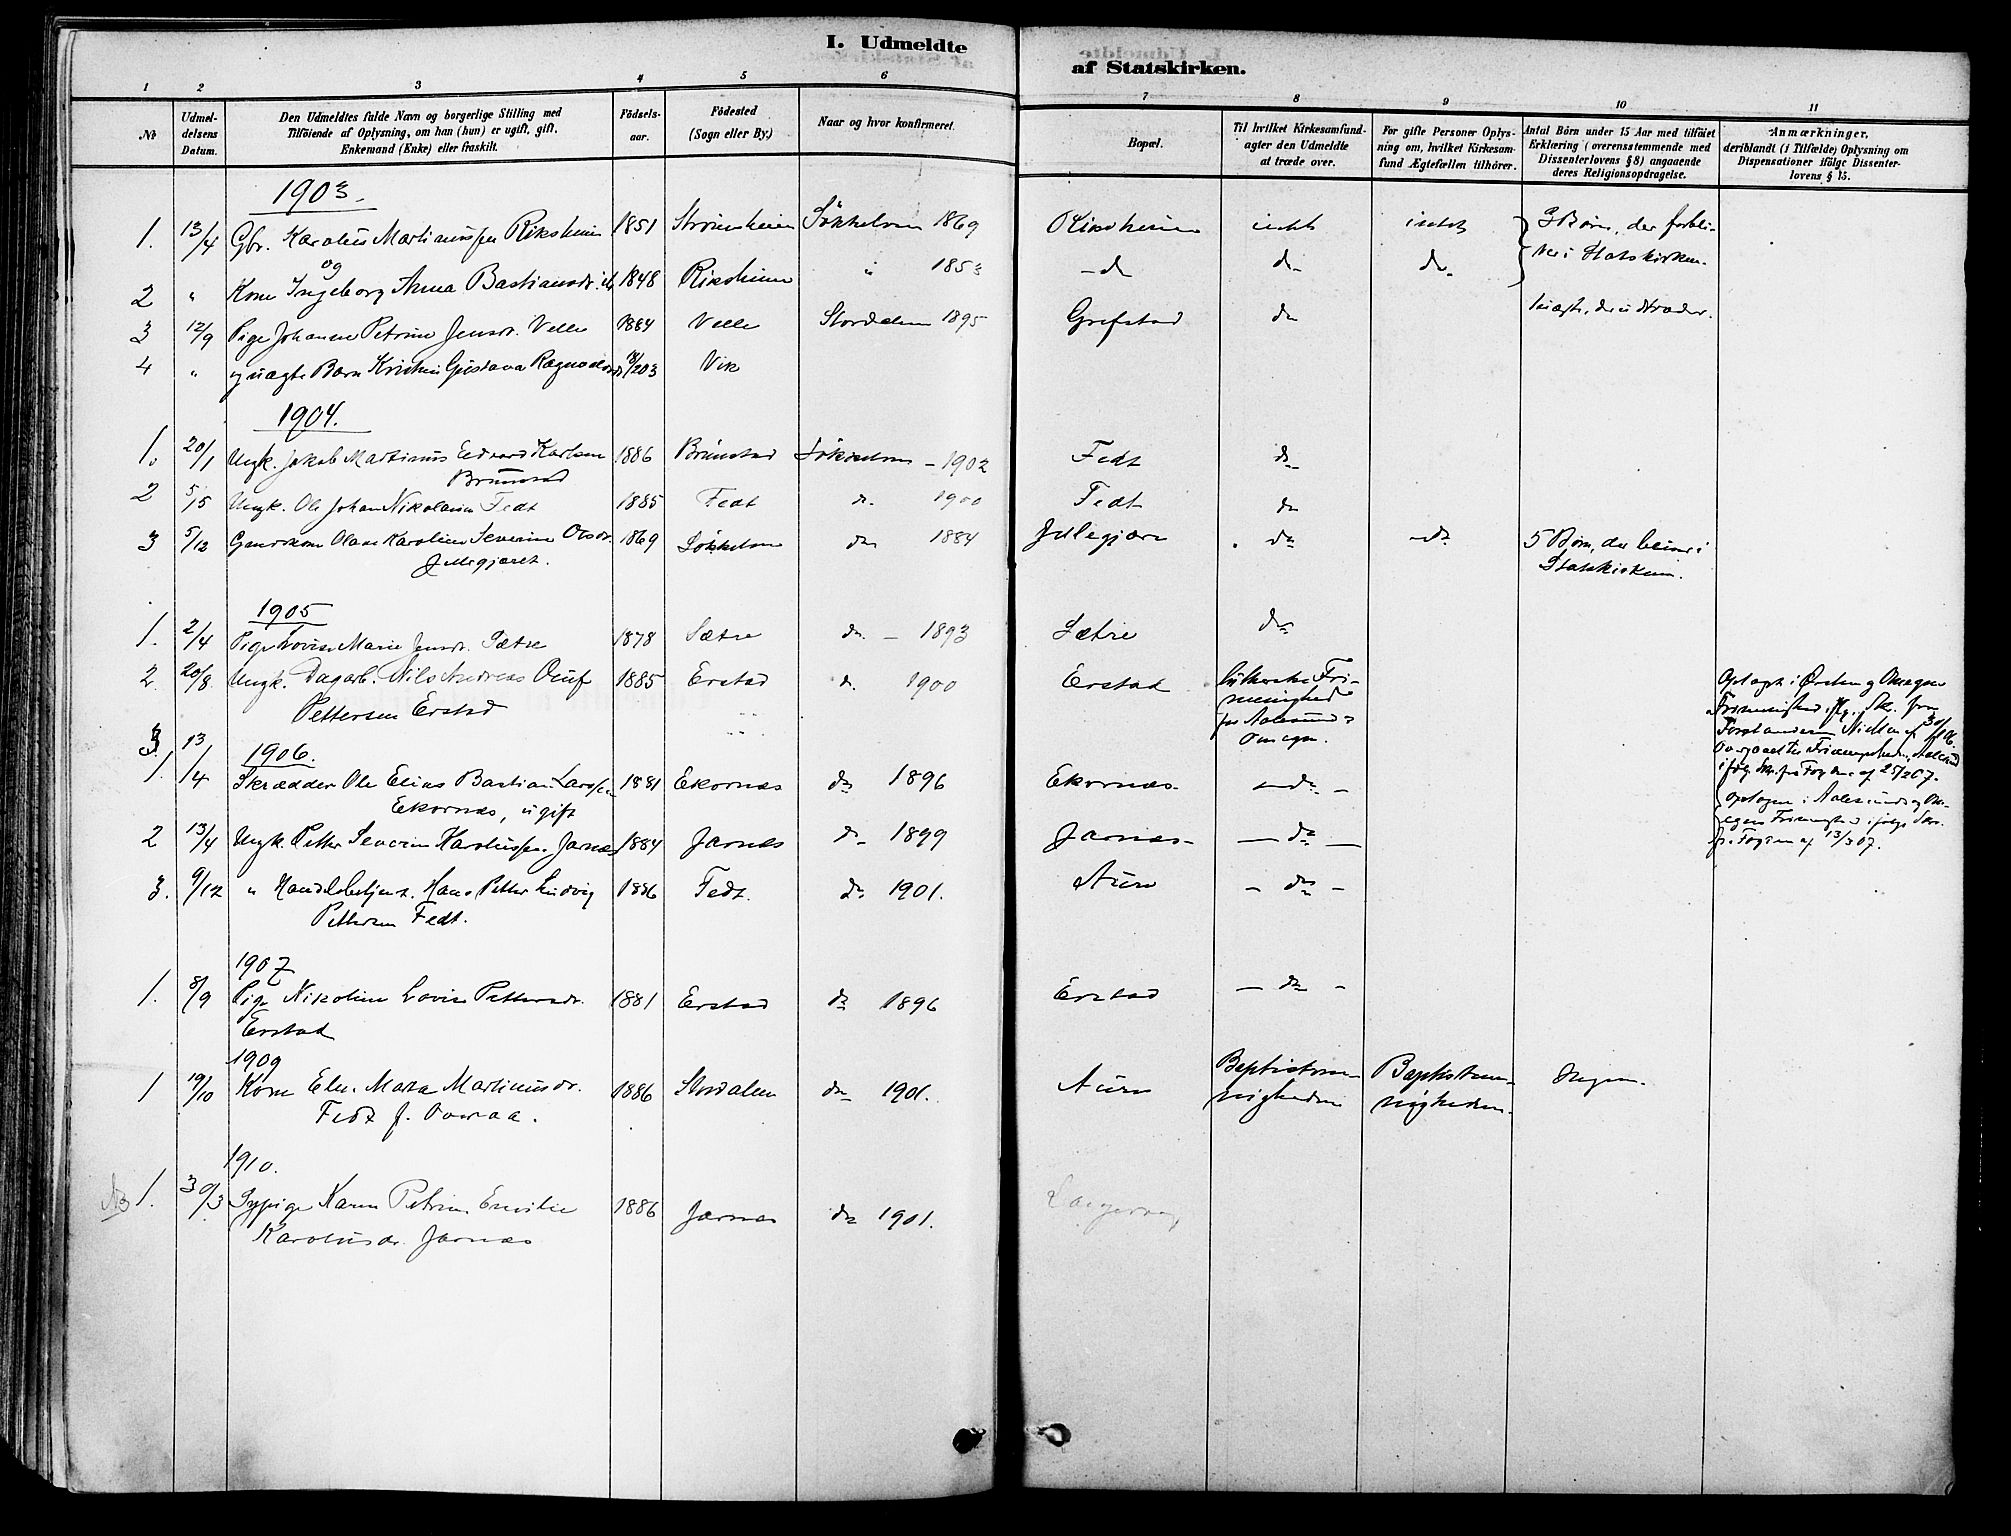 I. Udmeldte
af Statskirken.
1 2 3 4 5 6
7 8 9 10 11
No
Udmeldelsens Datum.
Den Udmeldtes fulde Navn og borgerlige Stilling med
Tilföiende af Oplysning, om han (hun) er ugift, gift,
Enkemand (Enke) eller fraskilt.
Födsels-
aar.
Födested
(Sogn eller By.)
Naar og hvor konfirmeret.
Bopæl.
Til hvilket Kirkesamfund-
agter den Udmeldte
at træde over.
For gifte Personer Oplys-
ning om, hvilket Kirkesam-
fund Ægtefællen tilhörer.
Antal Börn under 15 Aar med tilföiet
Erklæring (overensstemmende med
Dissenterlovens § 8) angaaende
deres Religionsopdragelse.
Anmærkninger,
deriblandt (i Tilfælde) Oplysning om
Dispensationer ifölge Dissenter-
lovens § 15.
1903.
1. 13/4 Gbr. Karolus Martinussen Riksheim 1851 Strømsheim Søkkelven 1869 Riksheim intet intet 3 Børn, der forbli-
ver i Statskirken.
og
2 " Kone Ingeborg Anna Bastiansdr. 1848 Riksheim " 1853 - d d. d.
3 12/9 Pige Johanne Petrine Jensdr. Velle 1884 Velle Stordalen 1895 Grefstad do uægte, der udtræder.
4 " og uægte Barn Kristine Gustava Ragnvaldsdr. Vik
1904.
1. 20/1 Ungk. Jakob Martinus Edvard Karlsen 1886 Brunstad Søkkelven - 1902 Fedt do
Brunstad
2 5/5 Ungk. Ole Johan Nikolaisen Fedt 1885 Fedt d. 1900 Fedt do
3 5/12 Gaardkone Olave Karoline Severine Olsdr. 1869 Søkkelven do 1884 Jullegjære do do 5 Børn, der bliver i
Jullegjæret. Statskirken.
1905
1. 2/4 Pige Lovise Marie Jensdr. Sætre 1878 Sætre do. - 1893 Sætre do
2. 20/8 Ungk. Dagarb. Nils Andreas Oluf 1885 Erstad d. 1900 Erstad lutherske Fri-
Pettersen Erstad menighed
for Aalesund &
Omegn.
Optagt i Ørsten og Omegns
Frimenighed iflg. Skr. fra
Forstanderen
Overgaaet til Frimenigheden, Aalesund
ifølge Skr. fra af 25/2 07.
3 13
1906.
1. 1/4 Skrædder Ole Elias Bastian Larssen 1881 Ekornæs do 1896 Ekornæs - do -
Ekornæs, ugift
Optagen i Aalesunds og Om-
egns Frimenighed ifølge Skr.
fr. af 13/3 07.
2 13/4 Ungk. Petter Severin Karolussen Jarnæs 1884 Jarnæs do 1899 Jarnæs - do -
3. 9/12 " Handelsbetjent. Hans Petter Ludvig 1886 Fedt. do 1901. Aure - do -
Pettersen Fedt.
1907
1. 8/9 Pige Nikoline Lovise Pettersdr. 1881 Erstad do 1896 Erstad - do -
Erstad
1909
1 19/10 Kone Eln. Marta Martinusdr. 1886 Stordalen do 1901. Aure Baptistme- Baptistme- Ingen.
Fedt f. Overaa. nigheden nigheden.
1910.
1. 30/3 Sypige Karen Petrine Emilie 1886 Jarnæs do 1901.
Karolusdr. Jarnæs